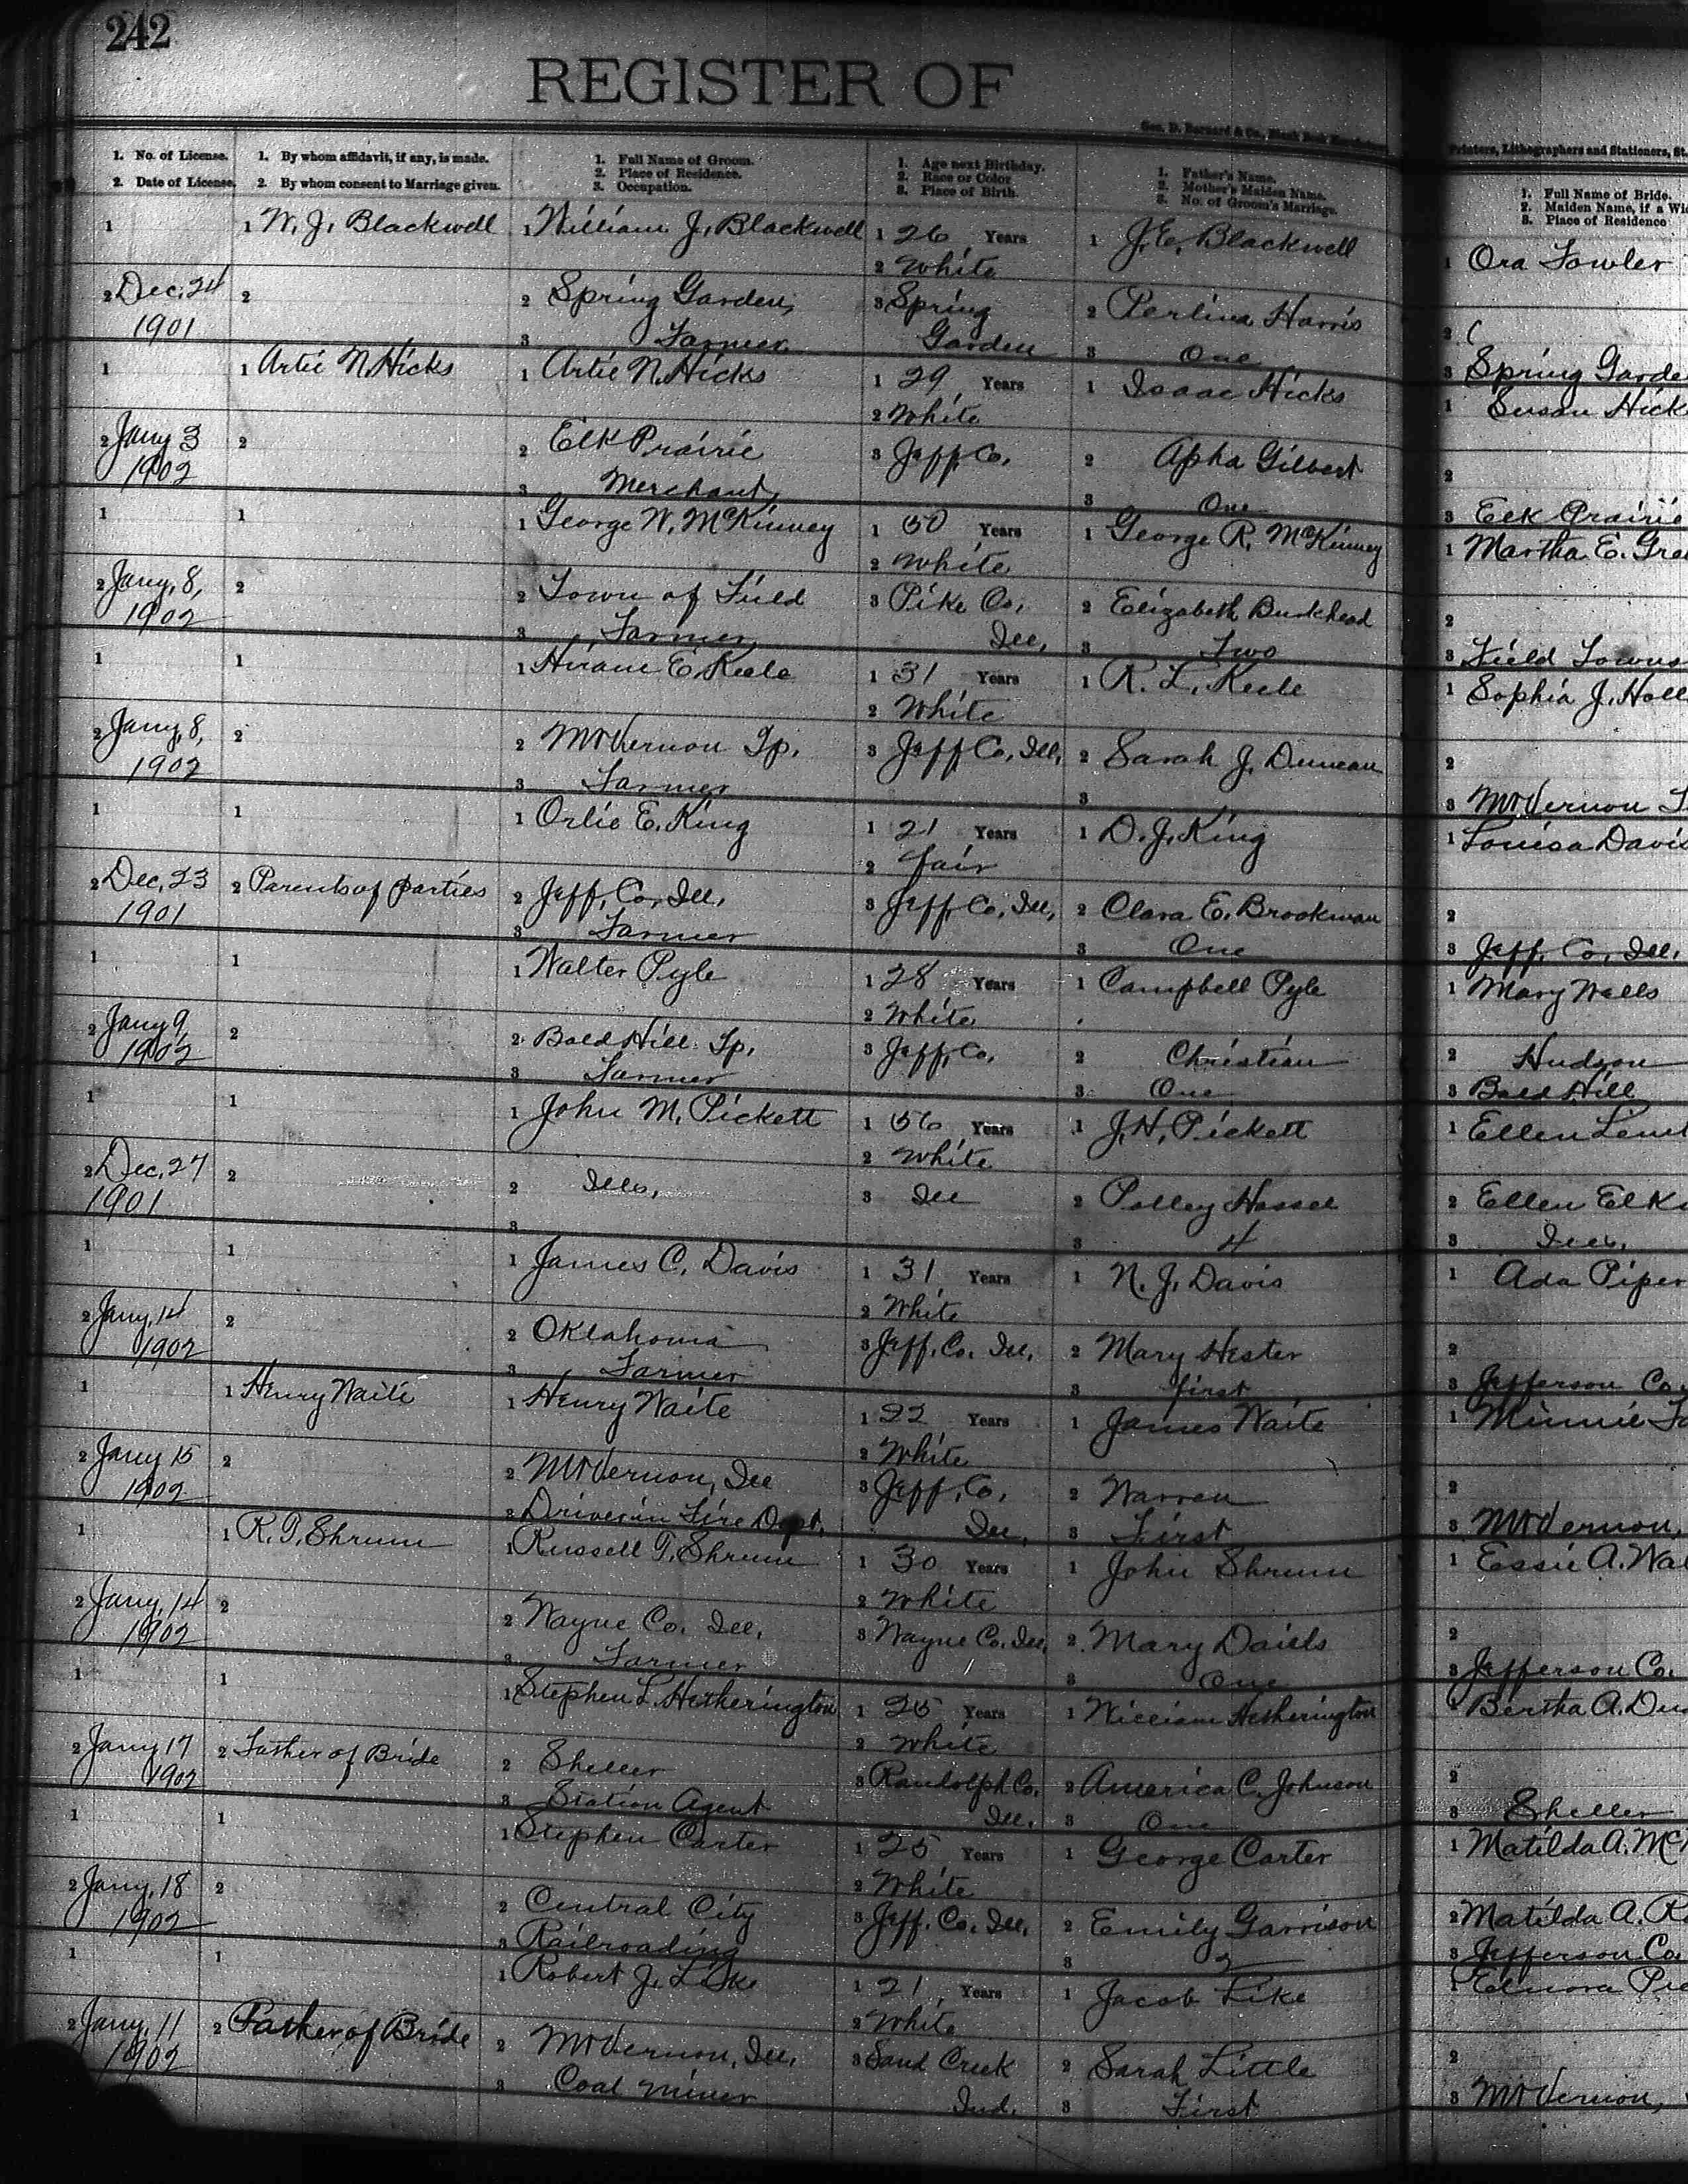 242
REGISTER OF
Geo. D. Barnard & Co., Blank Book
Printers, Lithographers and Stationers, St.
1. No. of License.
2. Date of License.
1. By whom affidavit, if any, is made.
2. By whom consent to Marriage given.
1. Full Name of Groom.
2. Place of Residence.
3. Occupation.
1. Age next Birthday.
2. Race or Color
3. Place of Birth.
1. Father's Name.
2. Mother's Maiden Name.
3. No. of Groom's Marriage.
1. Full Name of Bride.
2. Maiden Name, if a Wi
3. Place of Residence
1 1 W. J. Blackwell 1 William J. Blackwell 1 26 Years 1 J. E. Blackwell 1 Ora Fowler
2 White
2 Dec. 24 2 2 Spring Garden, 3 Spring 2 Perlina Harris 2
1901 3 Farmer Garden 3 One 3 Spring Garde
1 1 Artie N. Hicks 1 Artie N. Hicks 1 29 Years 1 Isaac Hicks 1 Susan Hick
2 White
2 Jany 3 2 2 Elk Prairie 3 Jeff. Co. 2 Apha Gilbert 2
1902 3 Merchant 3 One 3 Elk Prairie
1 1 1 George W. McKinney 1 50 Years 1 George R. McKinney 1 Martha E. Gre
2 White
2 Jany. 8, 2 2 Town of Field 3 Pike Co, 2 Elizabeth Burkhead 2
1902 3 Farmer Ill, 3 Two 3 Field Towns
1 1 1 Hiram E. Keele 1 31 Years 1 R. L. Keele 1 Sophia J. Holl
2 White
2 Jany. 8, 2 2 Mt Vernon Tp. 3 Jeff Co, Ill, 2 Sarah J. Duncan 2
1902 3 Farmer 3 3 Mt Vernon T
1 1 1 Orlie E. King 1 21 Years 1 D. J. King 1 Louisa Davis
2 fair
2 Dec. 23 2 Parents of parties 2 Jeff. Co. Ill. 3 Jeff Co, Ill, 2 Clara E. Brookman 2
1901 3 Farmer 3 One 3 Jeff. Co. Ill.
1 1 1 Walter Pyle 1 28 Years 1 Campbell Pyle 1 Mary Wells
2 White
2 Jany 9, 2 2 Bald Hill Tp. 3 Jeff. Co. 2 Christian 2 Hudson
1902 3 Farmer 3 One 3 Bald Hill
1 1 1 John M. Pickett 1 56 Years 1 J. H. Pickett 1 Ellen
2 White
2 Dec. 27 2 2 Ills. 3 Ill 2 Polley Hassel 2 Ellen Elk
1901 3 3 4 3 Ills.
1 1 1 James C. Davis 1 31 Years 1 N. J. Davis 1 Ada Piper
2 White
2 Jany. 14 2 2 Oklahoma 3 Jeff. Co. Ill. 2 Mary Hester 2
1902 3 Farmer 3 first 3 Jefferson Co.
1 1 Henry Waite 1 Henry Waite 1 22 Years 1 James Waite 1 Minnie
2 White
2 Jany 15 2 2 Mt Vernon, Ill 3 Jeff. Co. 2 Warren 2
1902 3 Driver in Fire Dept. Ill, 3 First 3 Mt Vernon,
1 1 R. T. Shrum 1 Russell T. Shrum 1 30 Years 1 John Shrum 1 Essie A. Wal
2 White
2 Jany. 14 2 2 Wayne Co. Ill. 3 Wayne Co. Ill. 2 Mary 2
1902 3 Farmer 3 One 3 Jefferson Co.
1 1 1 Stephen L. Hetherington 1 25 Years 1 William Hetherington 1 Bertha A.
2 White
2 Jany 17 2 Father of Bride 2 Sheller 3 Randolph Co. 2 America C. Johnson 2
1902 3 Station Agent Ill. 3 One 3 Sheller
1 1 1 Stephen Carter 1 25 Years 1 George Carter 1 Matilda A. Mc
2 White
2 Jany. 18 2 2 Central City 3 Jeff. Co. Ill. 2 Emily Garrison 2 Matilda A.
1902 3 Railroading 3 2 3 Jefferson Co
1 1 1 Robert J. Like 1 21 Years 1 Jacob Like 1 Elnora
2 White
2 Jany. 11 2 Father of Bride 2 Mt Vernon, Ill. 3 Sand Creek 2 Sarah Little 2
1902 3 Coal Miner Ind. 3 First 3 Mt Vernon,